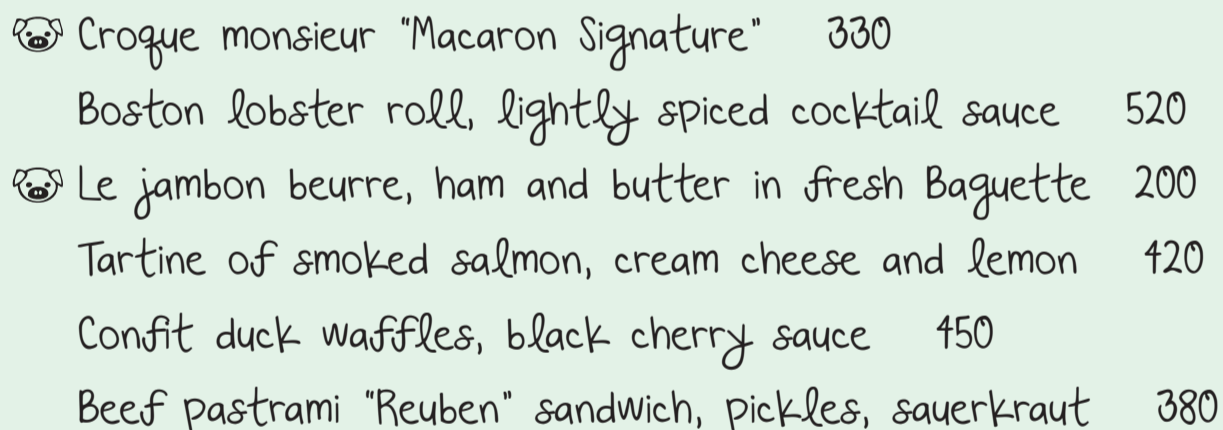 Croque monsieur "Macaron Signature" 330
Boston lobster roll, lightly spiced cocktail sauce 520
Le jambon beurre, ham and butter in fresh Baguette 200
Tartine of smoked salmon, cream cheese and lemon 420
Confit duck waffles, black cherry sauce 450
Beef pastrami "Reuben" sandwich, pickles, sauerkraut 380